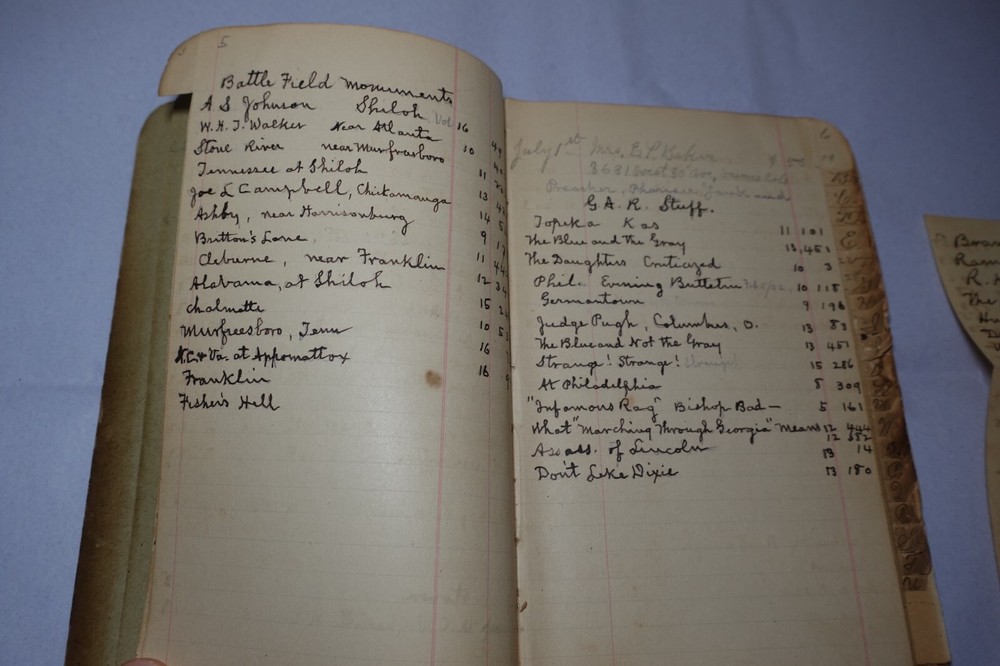 5
Battle Field Monuments
A S Johnson Shiloh Vol 16
W. H. T. Walker Near Atlanta
Stone River near Murfreesboro 10
Tennessee at Shiloh 11
Joe L Campbell, Chickamauga 13
Ashby, near Harrisonburg 14
Britton's Lane 9
Cleburne, near Franklin 11
Alabama, at Shiloh 12
Chalmette 15
Murfreesboro, Tenn 10
N.C. & Va. at Appomattox 16
Franklin 16
Fisher's Hill
6
July 1st Mrs. E. P. Baker
3681 West
Preacher,
G.A.R. Stuff.
Topeka Kas 11 101
The Blue and the Gray 13, 453
The Daughters Criticized 10 3
Phil. Evening Bulletin 10 118
Germantown 9 196
Judge Pugh, Columbus, O. 13 83
The Blue and Not the Gray 13 451
Strange! Strange! 15 286
At Philadelphia 5 309
"Infamous Rag" Bishop Bad— 5 161
What "Marching Through Georgia" Means 12 444
12 582
Assass. of Lincoln 13 14
Don't Like Dixie 13 180